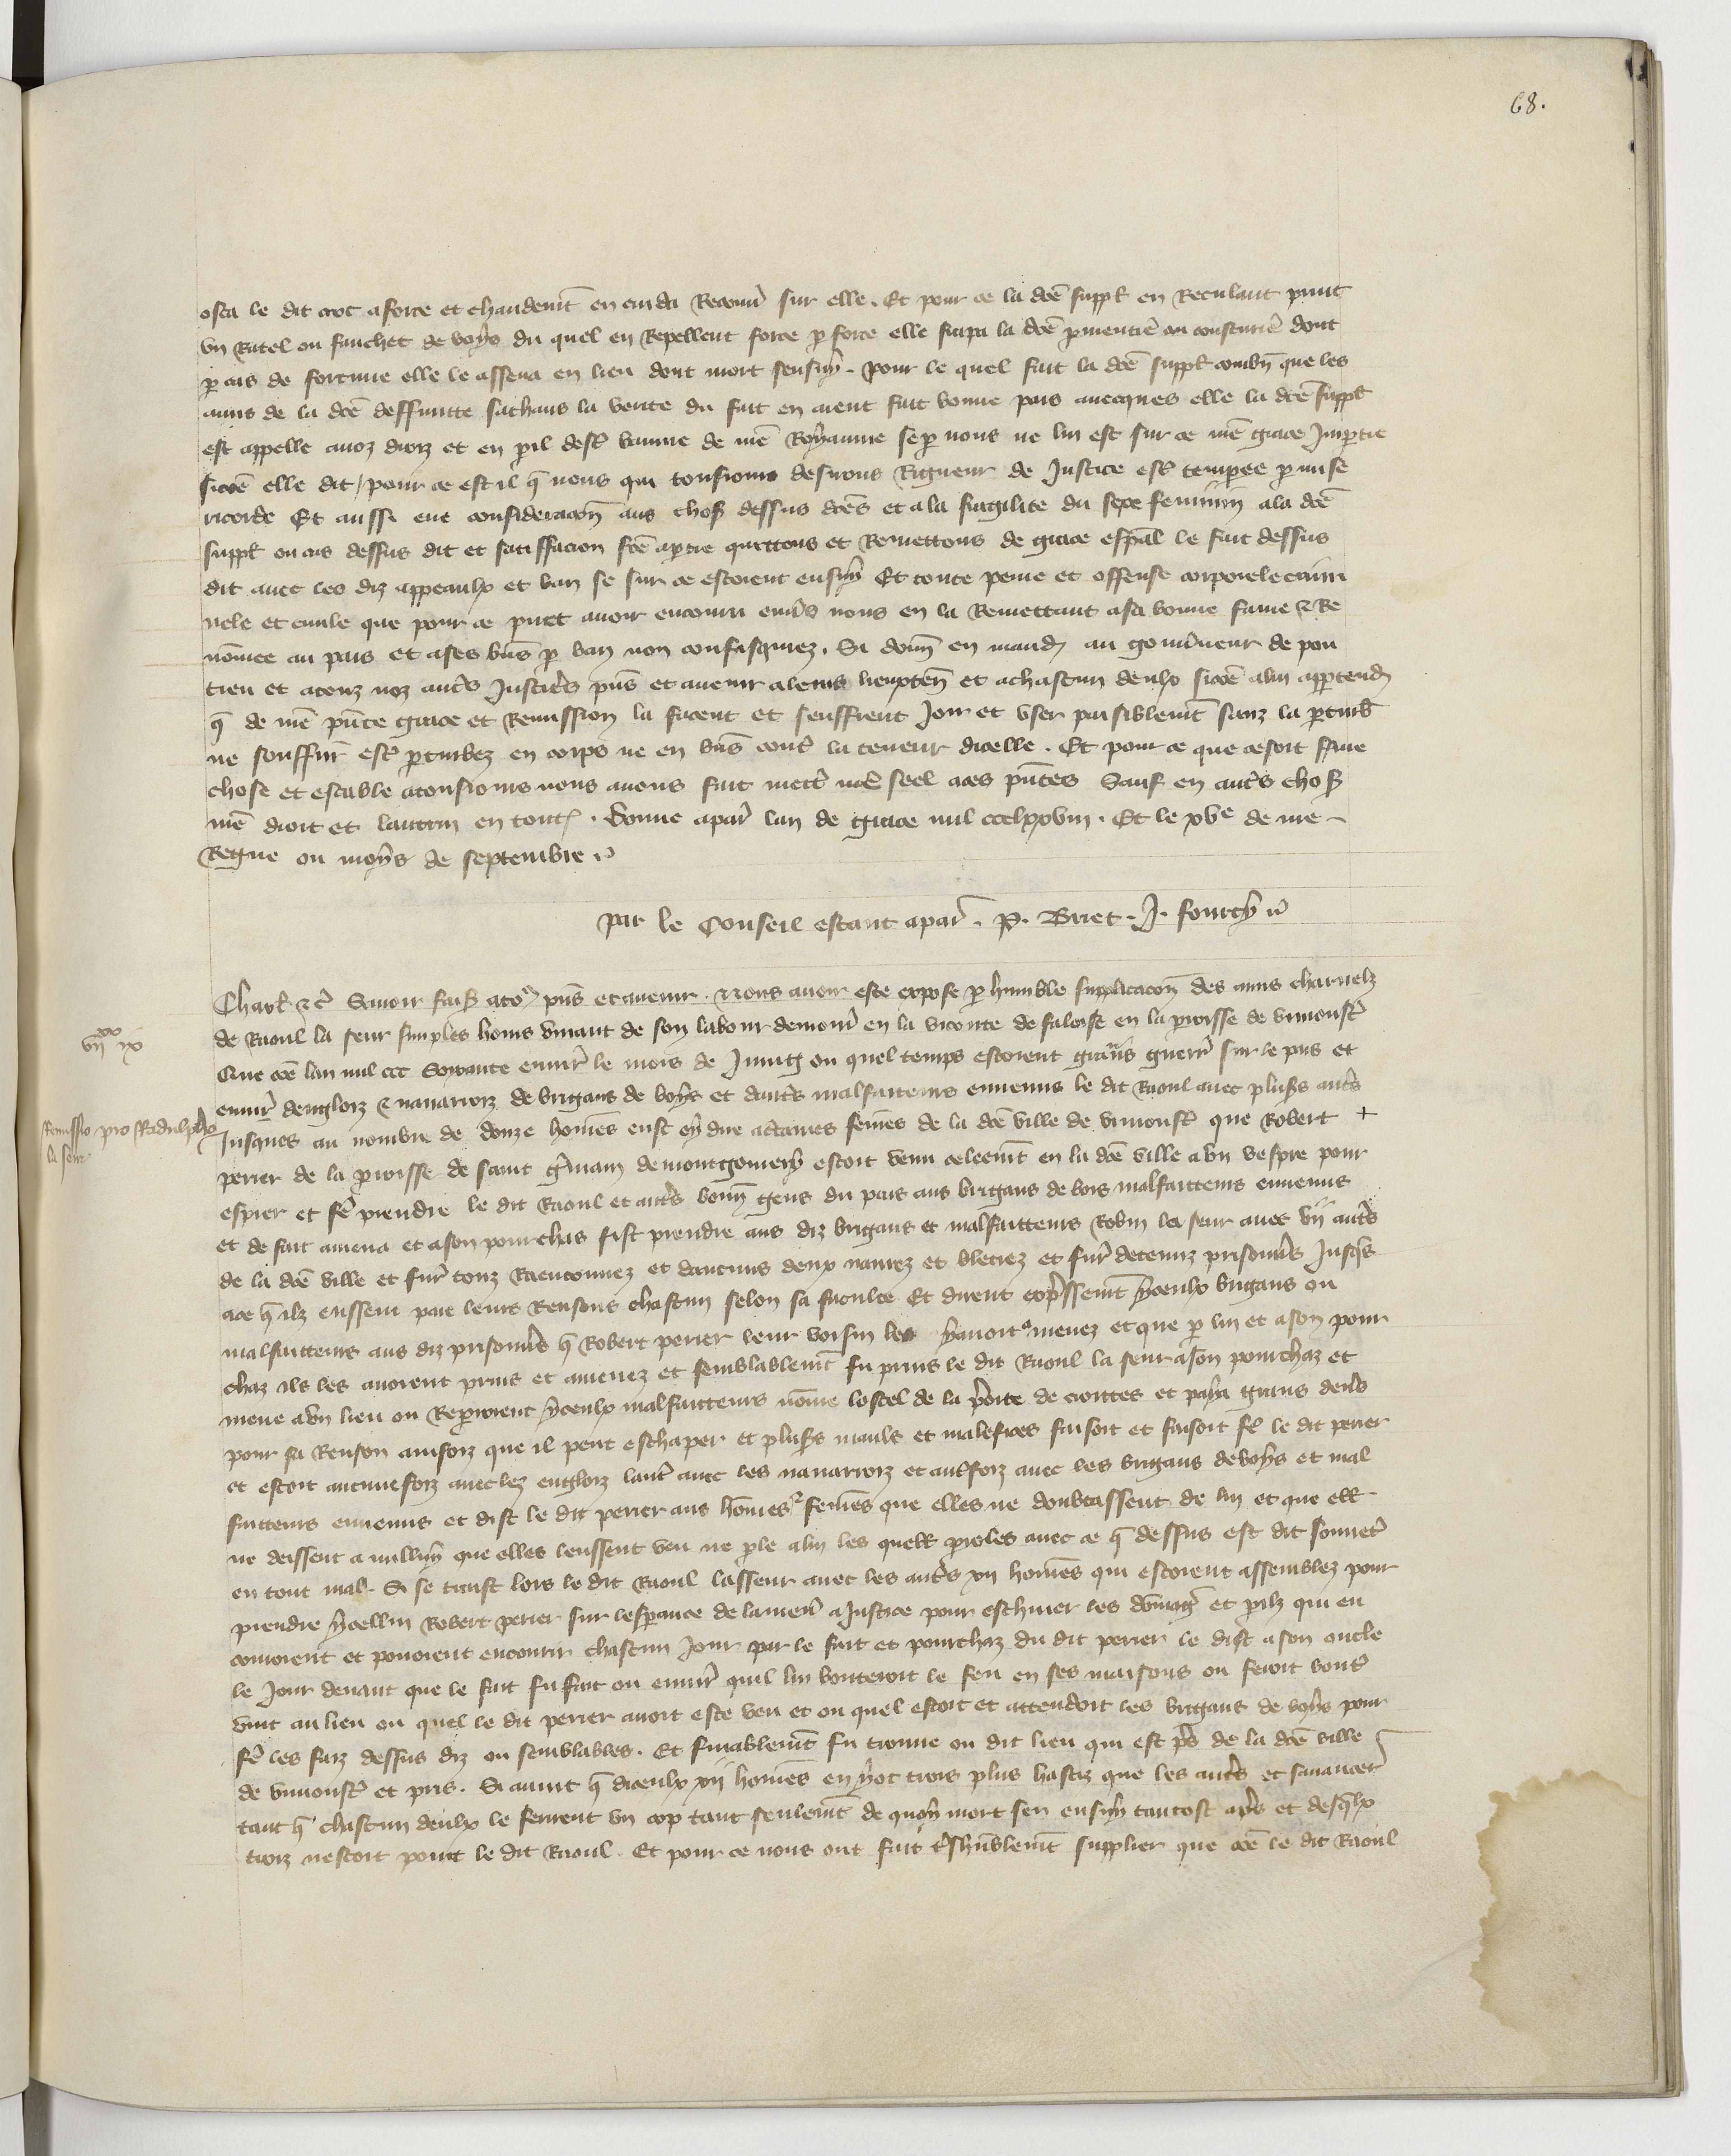 68.
osta le dit croc a force et chaudemt en cuida Recouvr sur elle. Et pour ce la dce suppl en Reculant print
vn Ratel ou fauchet de boys du quel en Repellent force p force elle frapa la dce parmentie ou cousturie dont
p cas de fortune elle le assena en lieu dont mort sensuy. Pour le quel fait la dce suppl combn que les
amis de la dce deffunte sachans la verite du fait en aient fait bonne pais avecques elle la dce suppl
est appelle a noz droiz et en pil destre bannie de nre Royaume se p nous ne lui est sur ce nre grace Impartie
sicoe elle dit / pour ce est il q nous qui tousiours desirons Rigueur de Justice estre tempree p mise
ricorde Et aussi eue consideracon aus choses dessus dces et a la fragilite du sexe feminin a la dce
suppl ou cas dessus dit et satisfacion fce a ptie quittons et Remettons de grace espal le fait dessus
dit avec les diz appeaulx et ban se sur ce estoient ensuy Et toute peine et offense corporele crimi
nele et civile que pour ce puet avoir encouru envs nous en la Remettant a sa bonne fame & Re
nomee au pais et a ses bns p ban non confisquiez. Si donn en mand au gouvneur de pon
tieu et a touz noz autrs Justiciers pns et avenir a leurs lieuxten et a chascun deulx sicoe a lui appartend
q de nre pnte grace et Remission la facent et seuffrent Joir et vser paisiblemt sanz la pturb
ne souffrir estre pturbez en corps ne en bns contre la teneur dicelle. Et pour ce que ce soit ferme
chose et estable a tousiours nous avons fait mettr nre seel a ces pntes Sauf en autrs choses
nre droit et lautrui en toutes. Donne a par lan de grace mil ccclxxviii. Et le xve de nre
Regne ou moys de septembre
Par le Conseil estant a par. P. Briet. J. fourcy
Charl &c Savoir faiss a to pns et avenir. Nous avoir este expose p humble supplicacon des amis charnelz
de Raoul la seur simples homs vivant de son labour demour en la viconte de faloise en la proisse de vimoustr
Que coe lan mil ccc soixante envir le mois de Juing ou quel temps estoient grans guerrs sur le pais et
envir dengloiz & navarroiz de brigans de boys et dautrs malfaitteurs ennemis le dit Raoul avec plusrs autrs
Jusques au nombre de douze homes eust oy dire a daines femes de la dce ville de vimoustr que Robert +
perier de la proisse de saint grmain de montgomery estoit venu celeemt en la dce ville a vn vespre pour
espier et fe prendre le dit Raoul et autrs bonn gens du pais aus brigans de bois malfaitteurs ennemis
et de fait amena et a son pourchas fist prendre aus diz brigans et malfaitteurs Robin la seur avec vii autrs
de la dce ville et furt touz Raenconnez et daucuns deux navrez et bleciez et furt detenuz prisonnis Jusqs
a ce q ilz eussent paie leurs Rensons chascun selon sa faculte Et dirent exprssemt yceulx brigans ou
malfaitteurs aus diz prisonnis q Robert perier leur voisin les y avoit amenez et que p lui et a son pour
chaz ilz les avoient prins et amenez et semblablemt fu prins le dit Raoul la seur a son pourchaz et
mene a vn lieu ou Repairoient yceulx malfaitteurs nome lostel de la porte de croittes et paya grans denrs
pour sa Renson aincoiz que il peut eschaper et plusrs maulx et malefices faisoit et faisoit fe le dit perier
et estoit aucunefoiz avec lez engloiz lautr avec les navarroiz et autrfoiz avec les brigans de boys et mal
faitteurs ennemis et dist le dit perier aus homes & femes que elles ne doubtassent de lui et que elles
ne deissent a nulluy que elles leussent veu ne ple a lui les quelles proles avec ce q dessus est dit sonnet
en tout mal. Si se traist lors le dit Raoul lasseur avec les autrs xii homes qui estoient assemblez pour
prendre ycellui Robert perier sur lesprance de lamenr a Justice pour eschiver les domages et pilz qui en
couroient et povoient encourir chascun Jour par le fait et pourchaz du dit perier le dist a son oncle
le Jour devant que le fait fu fait ou envir quil lui bouteroit le feu en ses maisons ou feroit boutr
vint au lieu ou quel le dit perier avoit este veu et ou quel estoit et attendoit les brigans de boys pour
fe les faiz dessus diz ou semblables. Et finablemt fu trouve ou dit lieu qui est prs de la dce ville
de vimoustr et pris. Si avint q diceulx xii homes en y ot trois plus hastiz que les autrs et savancer
tant q chascun deulx le ferirent vn cop tant seulemt de quoy mort sen ensuy tantost aprs et desqlx
troiz nestoit point le dit Raoul. Et pour ce nous ont fait trshublemt supplier que coe le dit Raoul
xx
vii ix
Remissio pro Radulpho
la seur